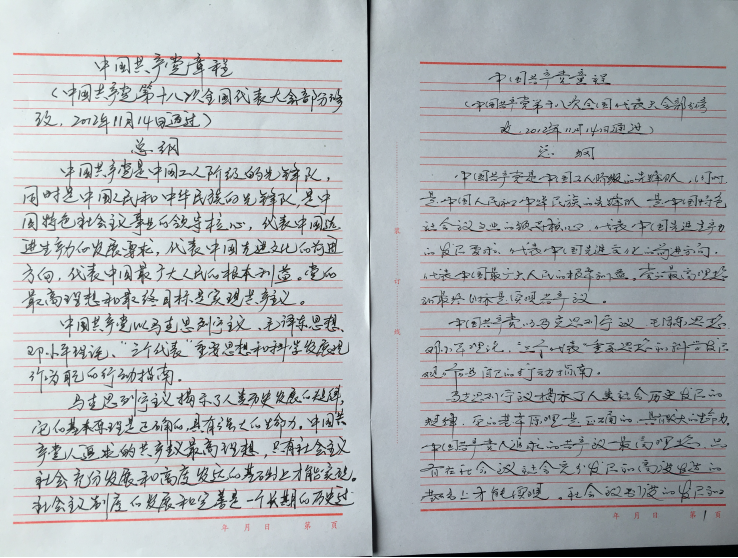 中国共产党章程
(中国共产党第十八次全国代表大会部分修
改,2012年11月14日通过)
总纲
中国共产党是中国工人阶级的先锋队,
同时是中国人民和中华民族的先锋队,是中
国特色社会主义事业的领导核心,代表中国先
进生产力的发展要求,代表中国先进文化的前进
方向,代表中国最广大人民的根本利益。党的
最高理想和最终目标是实现共产主义。
中国共产党以马克思列宁主义、毛泽东思想、
邓小平理论、“三个代表”重要思想和科学发展观
作为自己的行动指南。
马克思列宁主义揭示了人类历史发展的规律,
它的基本原理是正确的,具有强大的生命力。中国共
产党人追求的共产主义最高理想,只有社会主义
社会充分发展和高度发达的基础上才能实现。
社会主义制度的发展和完善是一个长期的历史过
年 月 日 第 页
中国共产党章程
(中国共产党第十八次全国代表大会部分修
改,2012年11月14日通过)
总纲
中国共产党是中国工人阶级的先锋队,同时
是中国人民和中华民族的先锋队,是中国特色
社会主义事业的领导核心,代表中国先进生产力
的发展要求,代表中国先进文化的前进方向,
代表中国最广大人民的根本利益。党的最高理想
和最终目标是实现共产主义。
中国共产党以马克思列宁主义、毛泽东思想、
邓小平理论、“三个代表”重要思想和科学发展
观作为自己的行动指南。
马克思列宁主义揭示了人类社会历史发展的
规律,它的基本原理是正确的,具有强大的生命力。
中国共产党人追求的共产主义最高理想,只
有在社会主义社会充分发展的高度发达的
基础上才能实现。社会主义制度的发展和
装
订
线
年 月 日 第 1 页